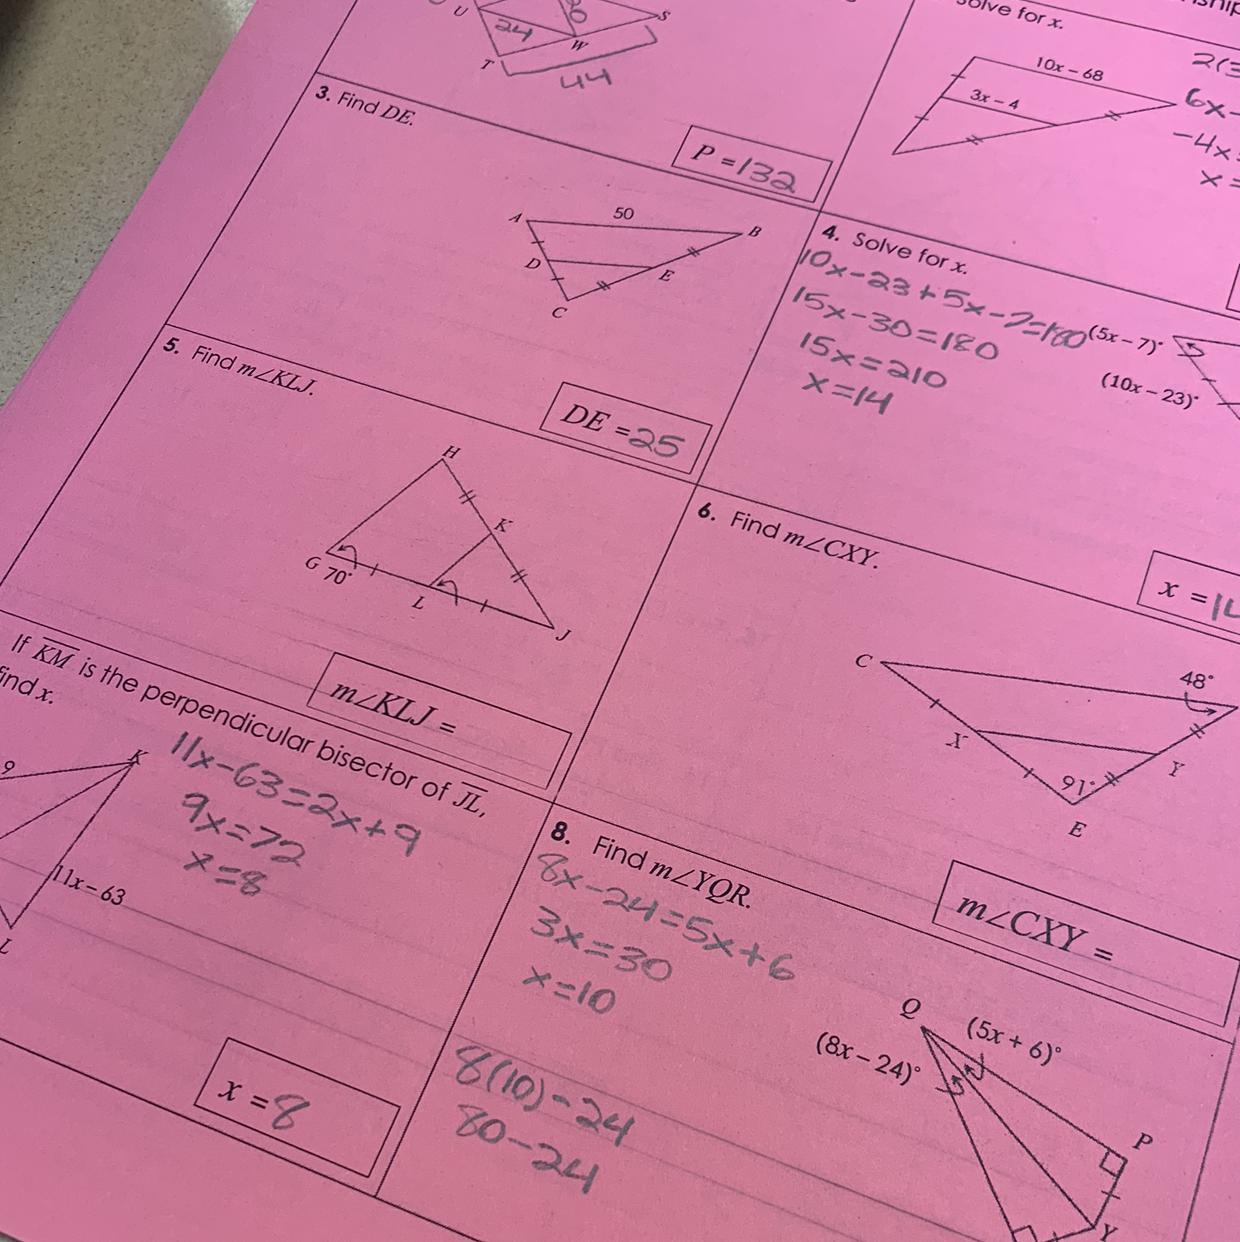 U
24
S
W
T
44
P = 132
Solve for x.
10x – 68
3x – 4
6x-
-4x=
x =
3. Find DE.
A
50
B
D
E
C
DE = 25
4. Solve for x.
10x-23+5x-7=180
15x-30=180
15x=210
x=14
(5x – 7)°
(10x – 23)°
x = 14
5. Find m∠KLJ.
H
K
G 70°
L
J
m∠KLJ =
6. Find m∠CXY.
C
48°
X
Y
91°
E
m∠CXY =
If KM is the perpendicular bisector of JL,
find x.
9
K
11x-63=2x+9
9x=72
x=8
11x – 63
L
x = 8
8. Find m∠YQR.
8x-24=5x+6
3x=30
x=10
8(10)-24
80-24
Q
(5x + 6)°
(8x – 24)°
P
Y